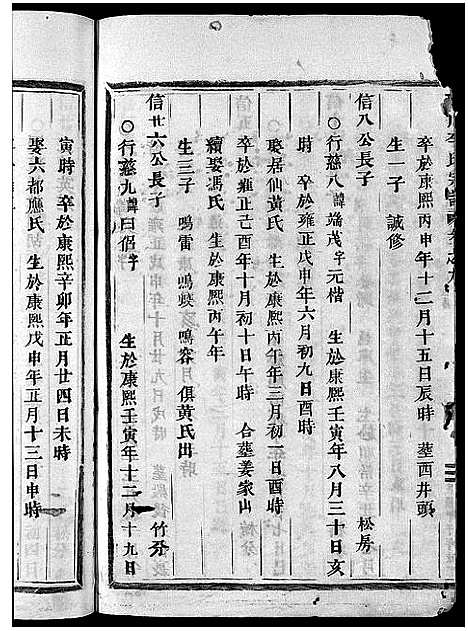 李氏宗譜卷之九
卒於康熙丙申年十二月十五日辰時 塟西井頭
生一子 誠修
信八公長子 松房
○行慈八諱端茂字元楷 生於康熙壬寅年八月三十日亥
時 卒於雍正戊申年六月初九日酉時
娶居仙黃氏 生於康熙丙午年三月初一日酉時
卒於雍正己酉年十月初十日午時 合塟姜家山
續娶馮氏 生於康熙丙午年
生三子 鳴雷 鳴 鳴容 俱黃氏出
信廿六公長子 竹分
○行慈九諱曰侶字 生於康熙壬寅年十二月十九日
寅時 卒於康熙辛卯年正月廿四日未時
娶六都應氏 生於康熙戊申年正月十三日申時